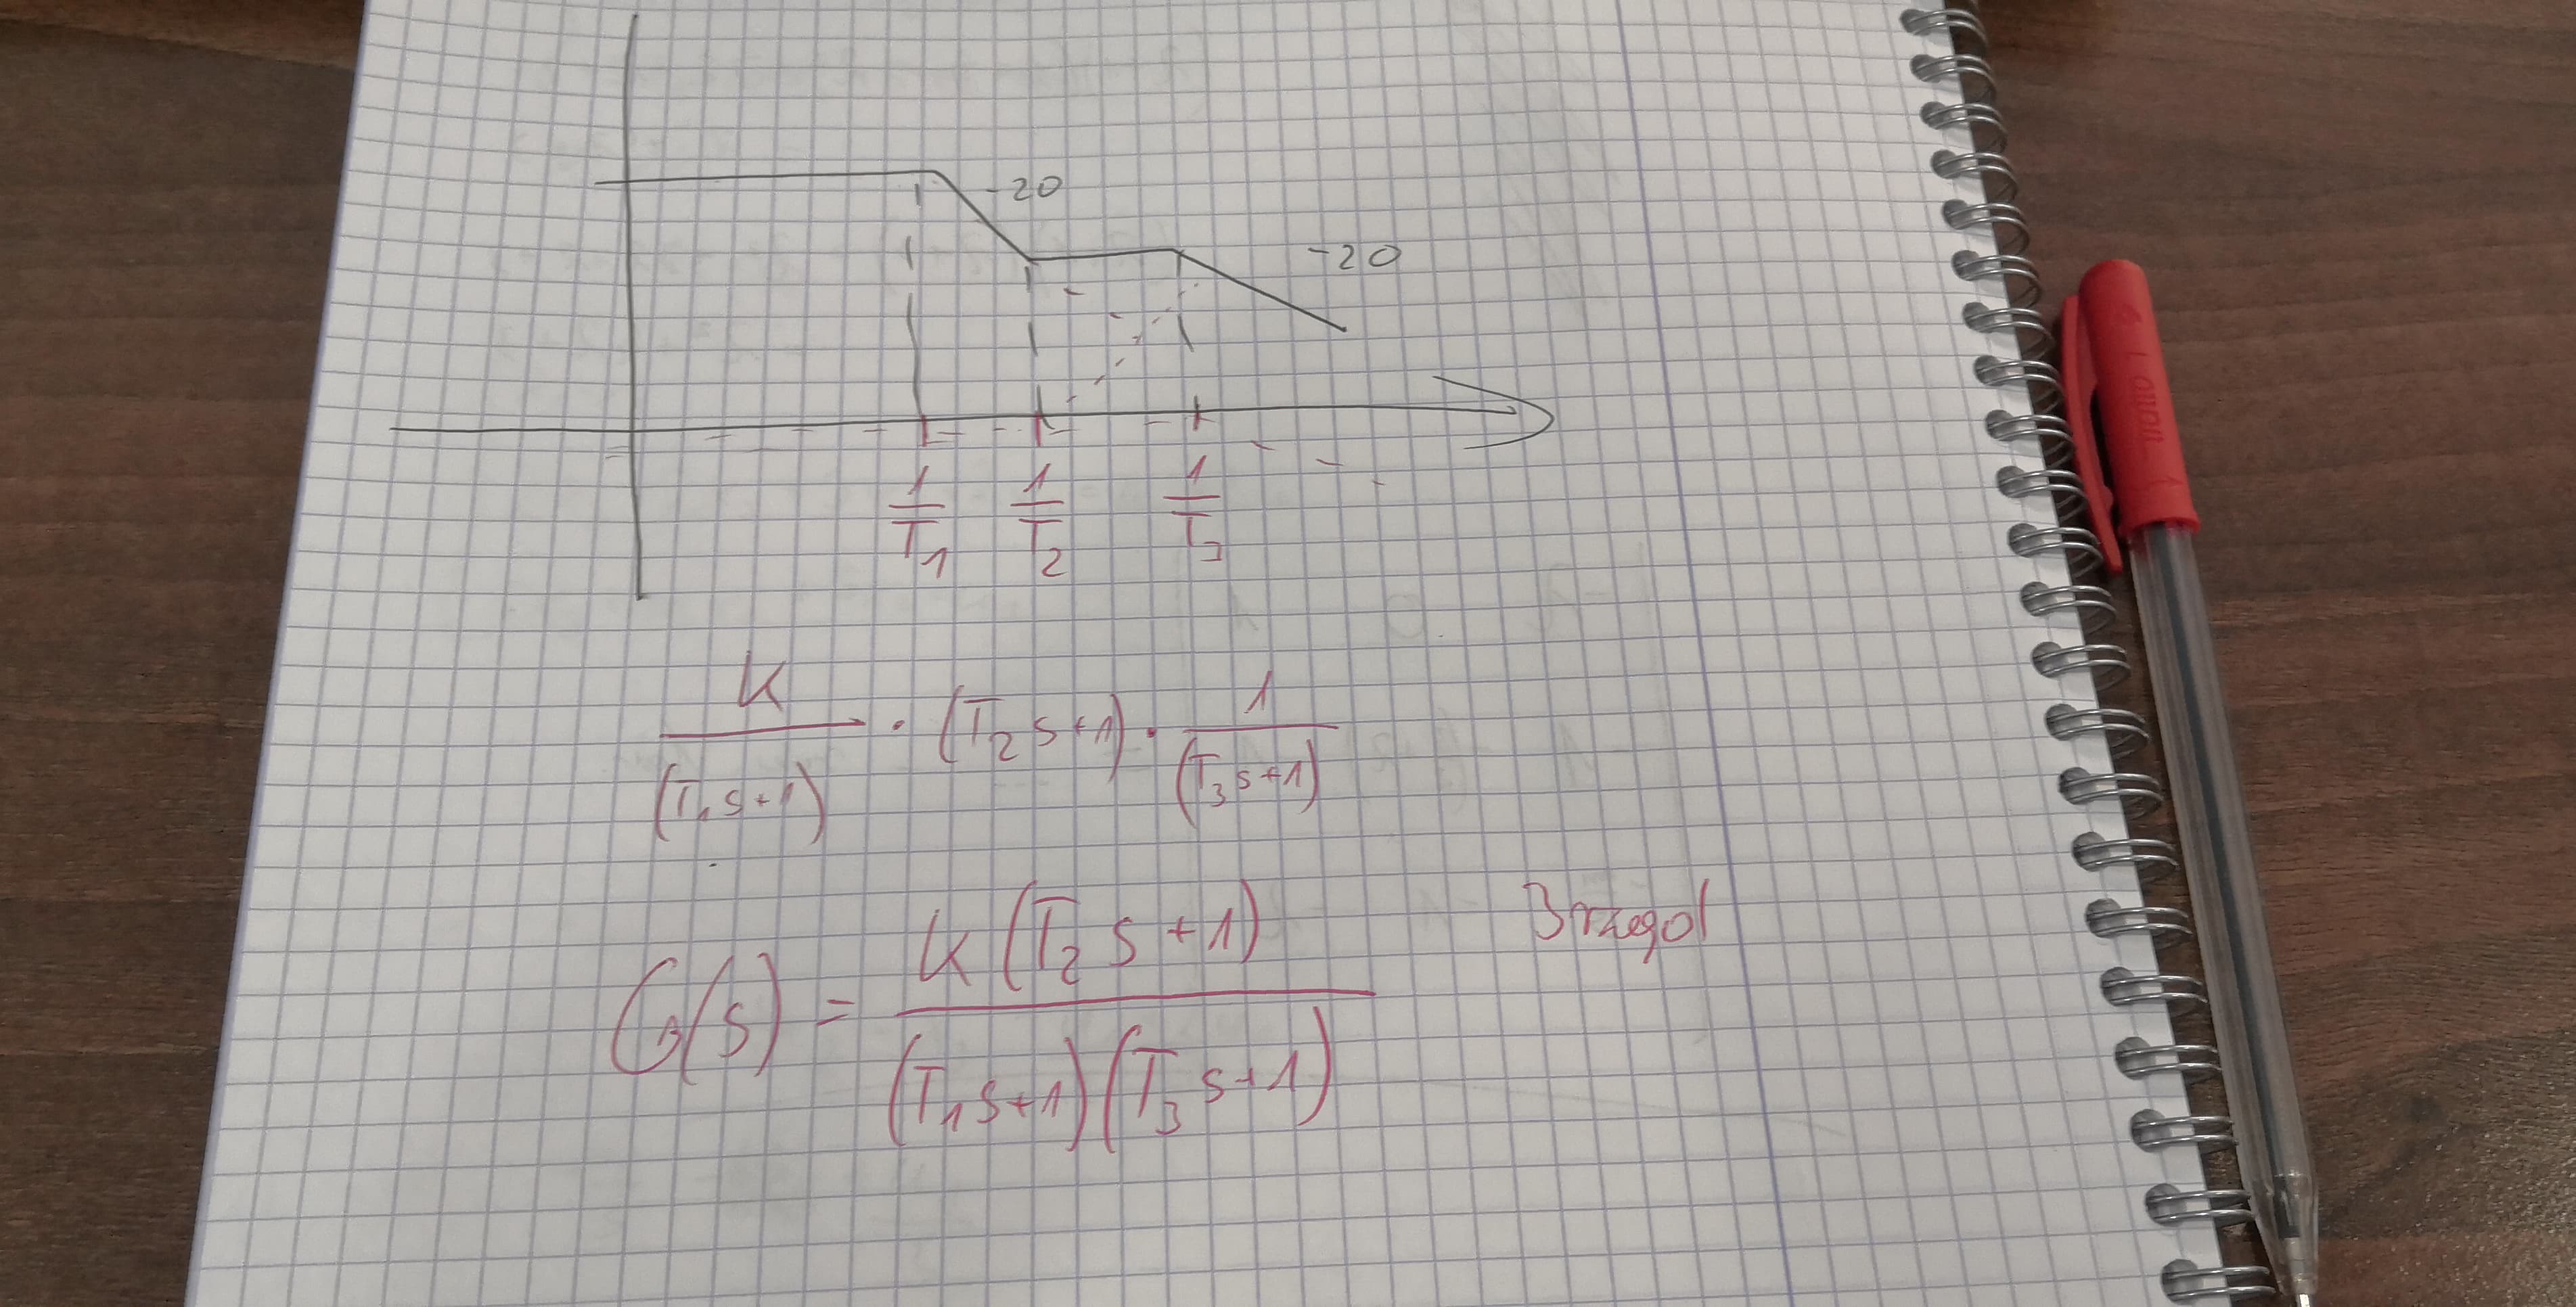 -20
-20
1/T1 1/T2 1/T3
K/(T1s+1) · (T2s+1) · 1/(T3s+1)
G(s) = K(T2s+1)/(T1s+1)(T3s+1)
3 rzęgol